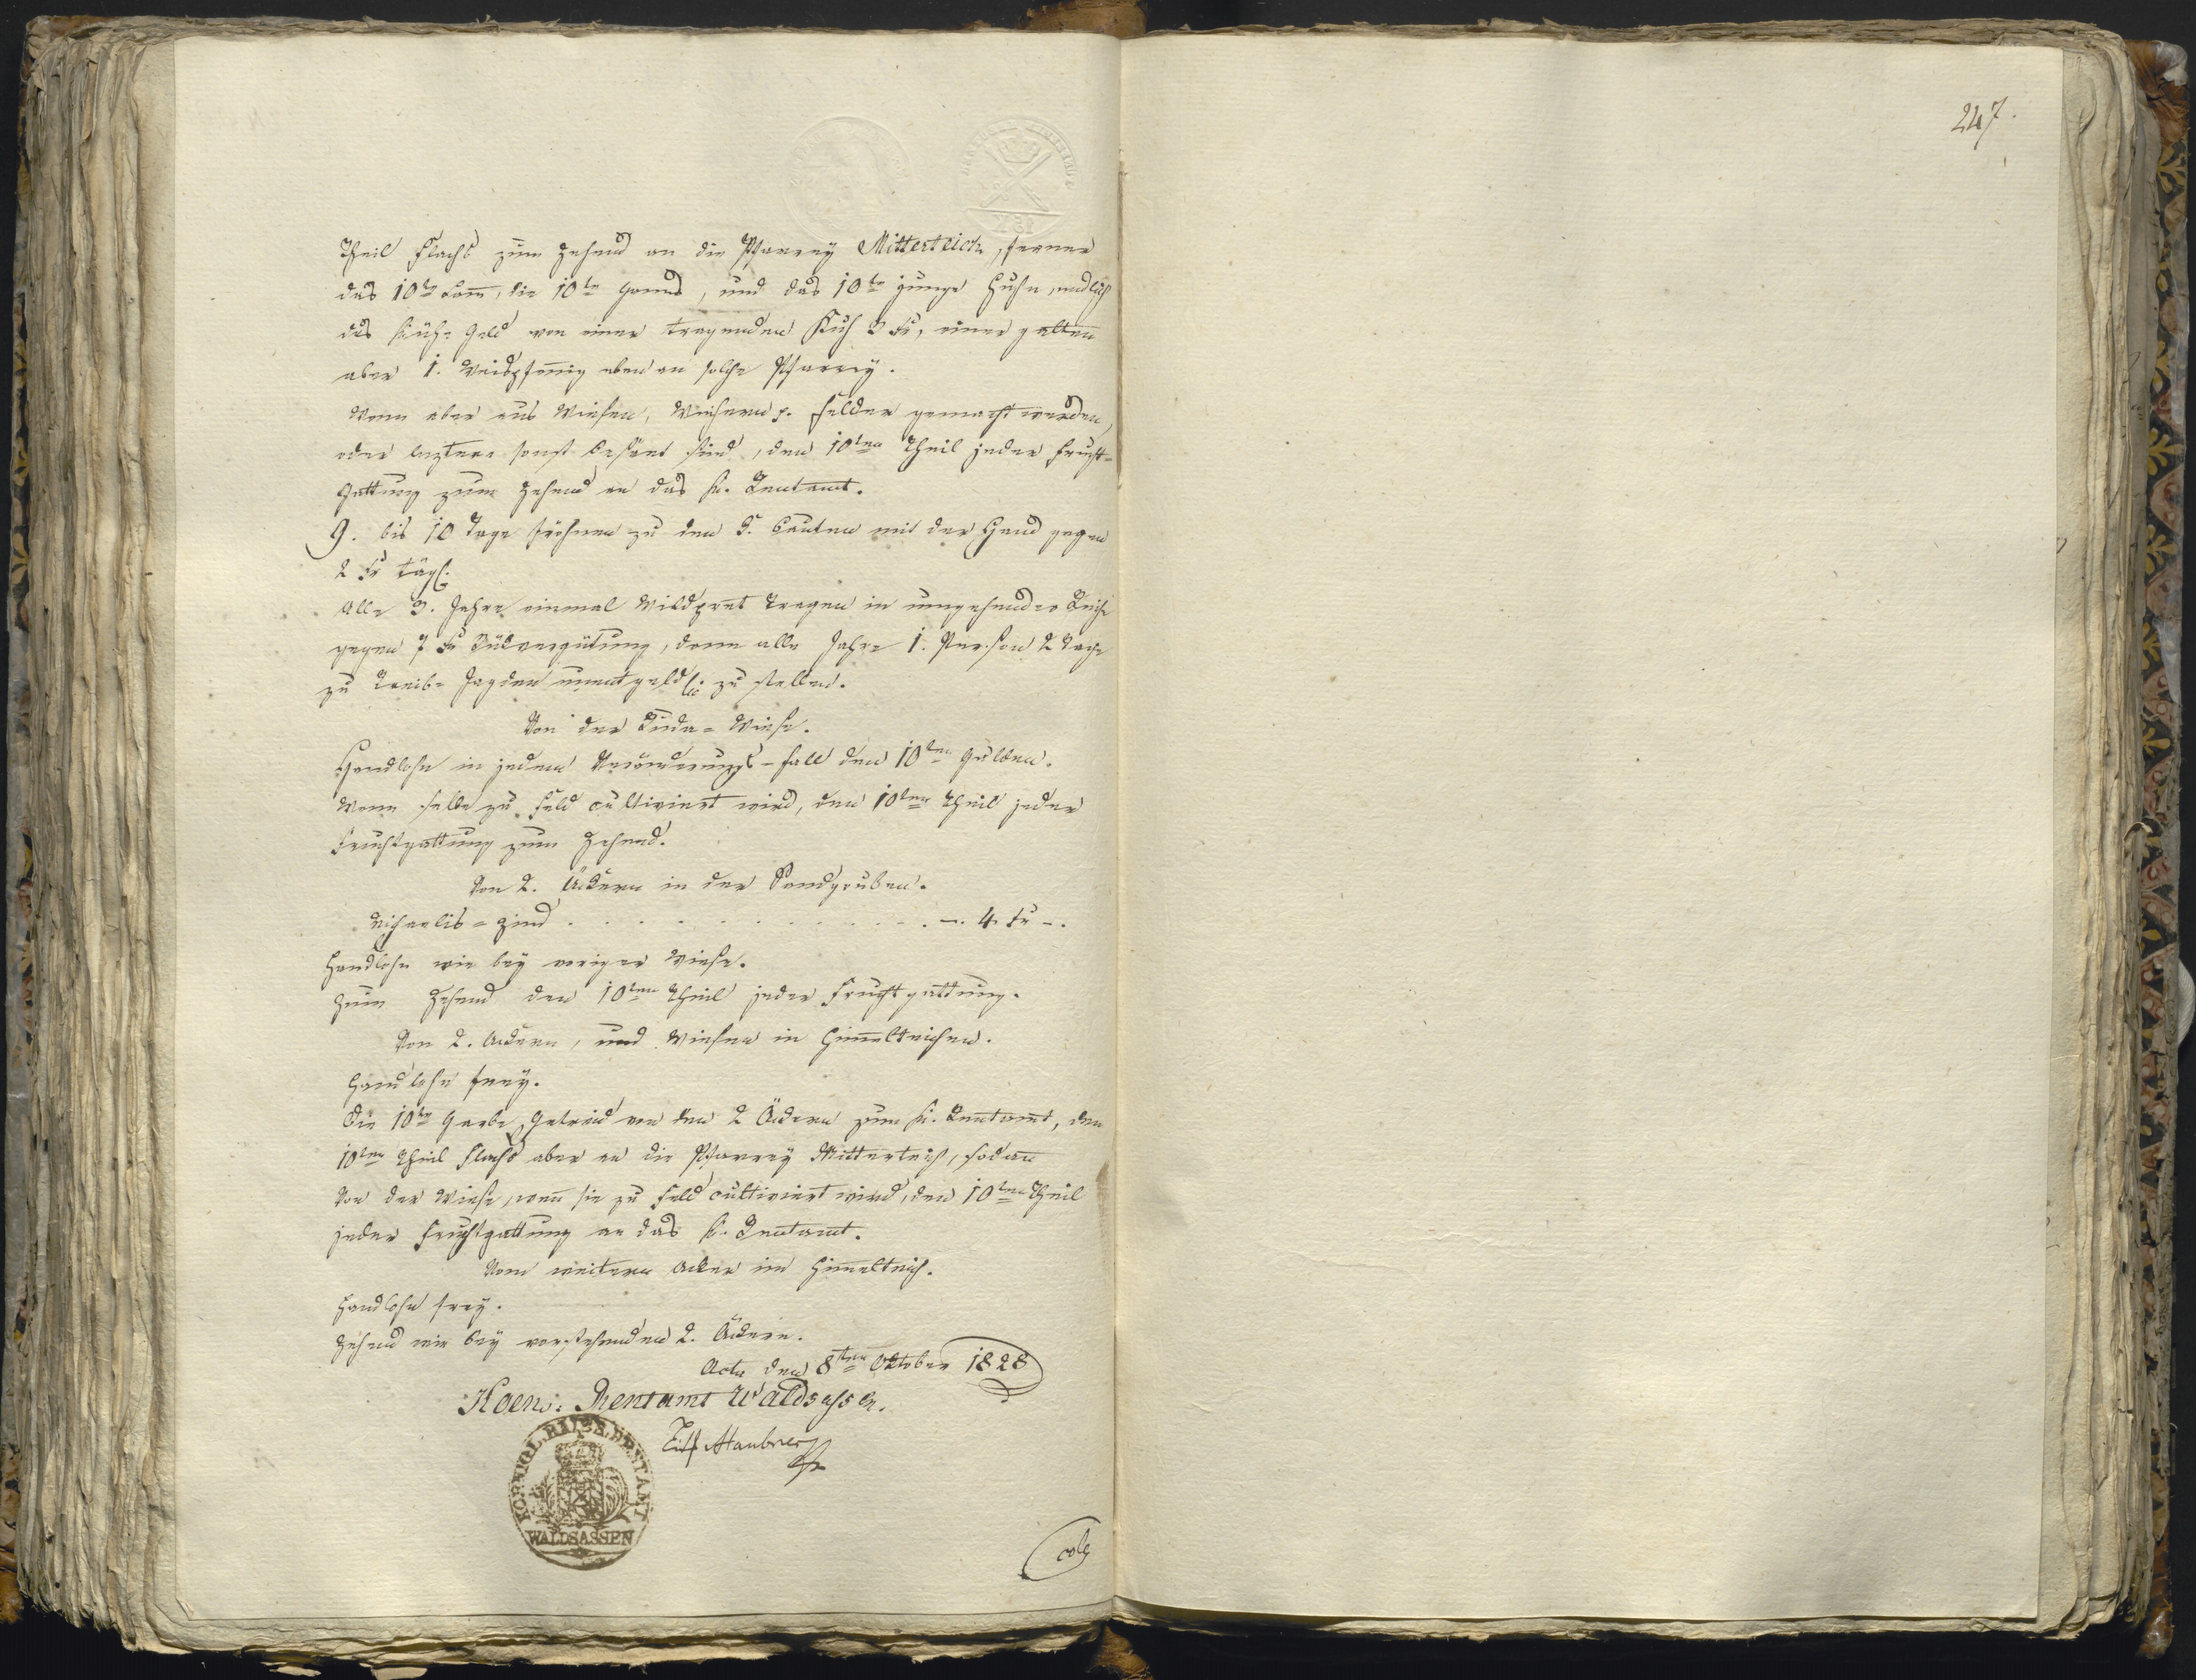 247.
Theil Flachs zum Zehend an die Pfarrey Mitterteich, ferner
das 10te Lam̅, die 10te Ganns, und das 10te junge Huhn, endlich
das Kühe Geld von einer tragenden Kuh 3 kr, einer galten
aber 1. Weispfen̅ig eben an solche Pfarrey.
Wenn aber aus Wiesen, Weihern p. Felder gemacht werden,
oder leztere sonst besäet sind, den 10ten Theil jeder Frucht=
Gattung zum Zehend an das K. Rentamt.
9. bis 10 Tage frohnen zu den H. Bauten mit der Hand gegen
2 kr tägl.
Alle 3. Jahre einmal Wildpret tragen in umgehender Reihe
gegen 7 kr Rückvergütung, dann alle Jahre 1. Person 2 Tage
zu Treib= Jagden unentgeldl: zu stellen.
Von der Wiese.
Handlohn in jedem Veränderungs=Fall den 10ten Gulden.
Wenn selbe zu Feld cultiviert wird, den 10ten Theil jeder
Fruchtgattung zum Zehend.
Von 2. Äckern in der Sandgruben.
Michaelis=Zins . . . . . . . . . . -. 4. kr -.
Handlohn wie bey voriger Wiese.
Zum Zehend den 10ten Theil jeder Fruchtgattung.
Von 2. Äckern, und Wiesen in Him̅elteichen.
Handlohn frey.
Die 10te Garbe Getreid von den 2 Äckern zum K. Rentamt, den
10ten Theil Flachs aber an die Pfarrey Mitterteich, sodan̅
Von der Wiese, wen̅ sie zu Feld cultiviert wird, den 10ten Theil
jeder Fruchtgattung an das K. Rentamt.
Vom weitern Acker im Him̅elteich.
Handlohn frey.
Zehend wie bey vorstehenden 2. Äckern.
Actu den 8ten Oktober 1828
Koen: Rentamt Waldsassen.
KOENIGL. BAIER. RENTAMT
WALDSASSEN